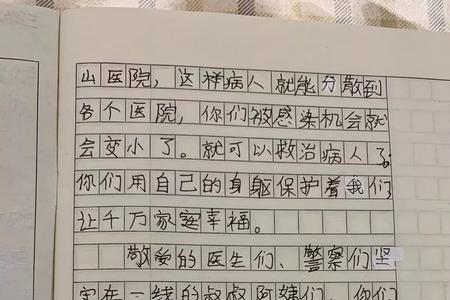 山医院，这样病人就能分散到
各个医院，你们被感染机会就
会变小了。就可以救治病人了。
你们用自己的身躯保护着我们，
让千万家庭幸福。
敬爱的医生们、警察们坚
守在一线的叔叔阿姨们，你们